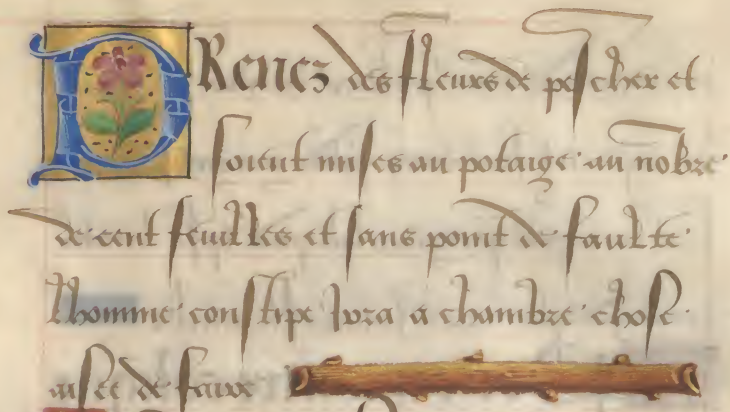 PRenez des fleurs de pescher et
soient mises au potaige au nobre
de cent feuilles et sans point de faulte
Lhomme constipe Jvra a chambre chose
aisee de faire